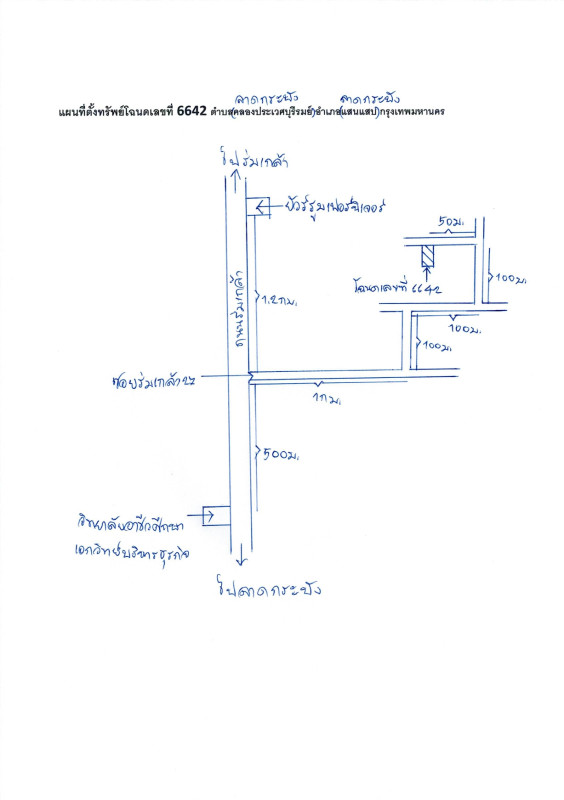 ลาดกระบัง ลาดกระบัง
แผนที่ตั้งทรัพย์โฉนดเลขที่ 6642 ตำบล(คลองประเวศบุรีรมย์)อำเภอ(แสนแสบ)กรุงเทพมหานคร
ไปร่มเกล้า
บัวร์รูมเฟอร์นิเจอร์
50ม.
ถนนร่มเกล้า
1.2กม.
โฉนดเลขที่ 6642
100ม.
100ม.
100ม.
ซอยร่มเกล้า22
1กม.
500ม.
วิทยาลัยอาชีวศึกษา
เอกวิทย์บริหารธุรกิจ
ไปลาดกระบัง